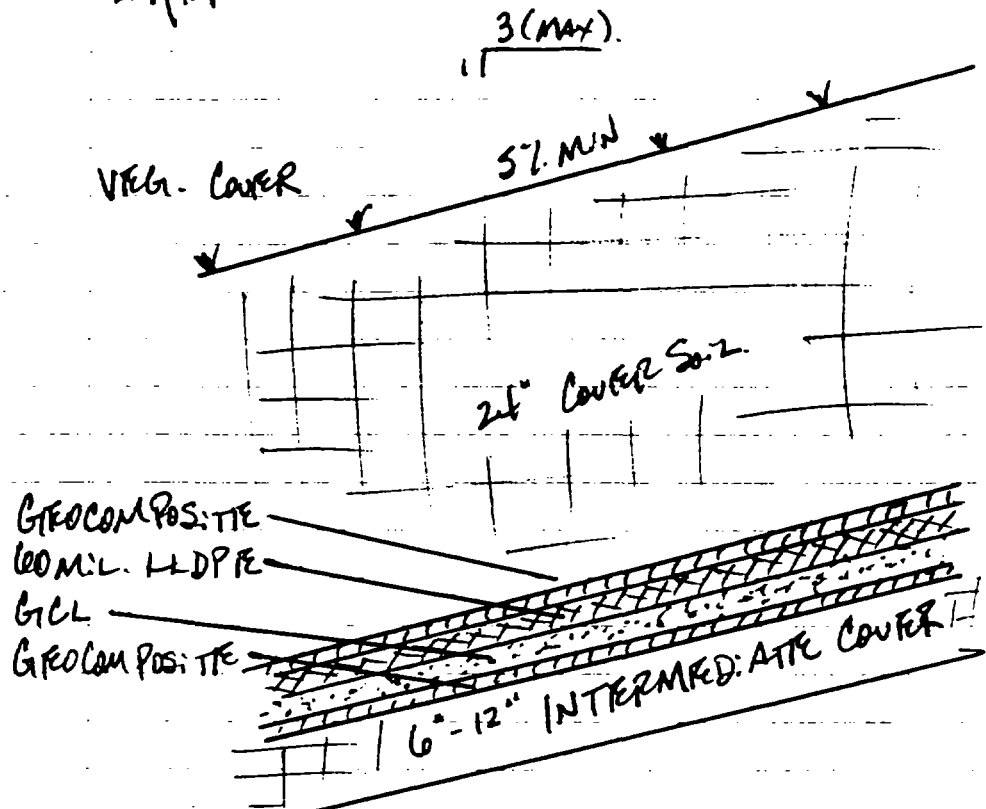 3 (MAX).
1
5% MIN
VEG. COVER
24" COVER SOIL
GEOCOMPOSITE
60 MIL. LLDPE
GCL
GEOCOMPOSITE
6" - 12" INTERMEDIATE COVER